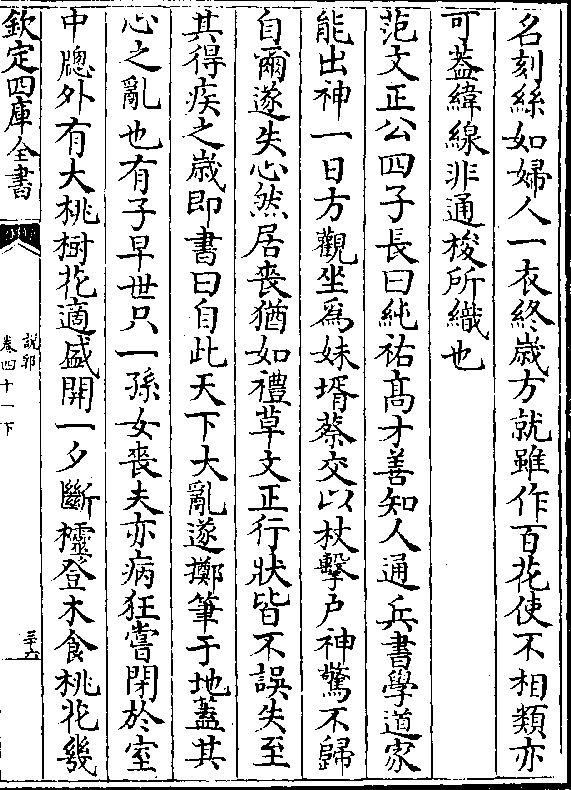 名刻絲如婦人一衣終歲方就雖作百花使不相類亦
可蓋緯線非通梭所織也
范文正公四子長曰純祐髙才善知人通兵書學道家
能出神一日方觀坐爲妹壻蔡交以杖擊户神驚不歸
自爾遂失心然居喪猶如禮草文正行狀皆不誤失至
其得疾之歲即書曰自此天下大亂遂擲筆于地蓋其
心之亂也有子早世只一孫女喪夫亦病狂嘗閉於室
中牕外有大桃樹花適盛開一夕斷欞登木食桃花幾
欽定四庫全書
說郛
卷四十一下
三十六